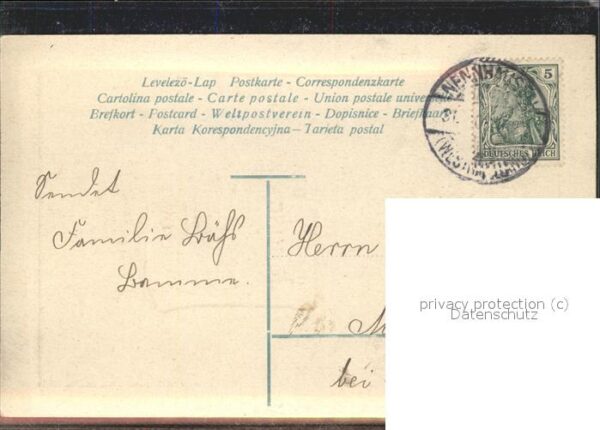 Levelező-Lap Postkarte - Correspondenzkarte
Cartolina postale - Carte postale - Union postale univer
Brefkort - Postcard - Weltpostverein - Dopisnice - Briefkaar
Karta Korespondencyjna - Tarjeta postal
5
DEUTSCHES REICH
(WESTF
Sendet
Familie
Herrn
bei
privacy protection (c)
Datenschutz